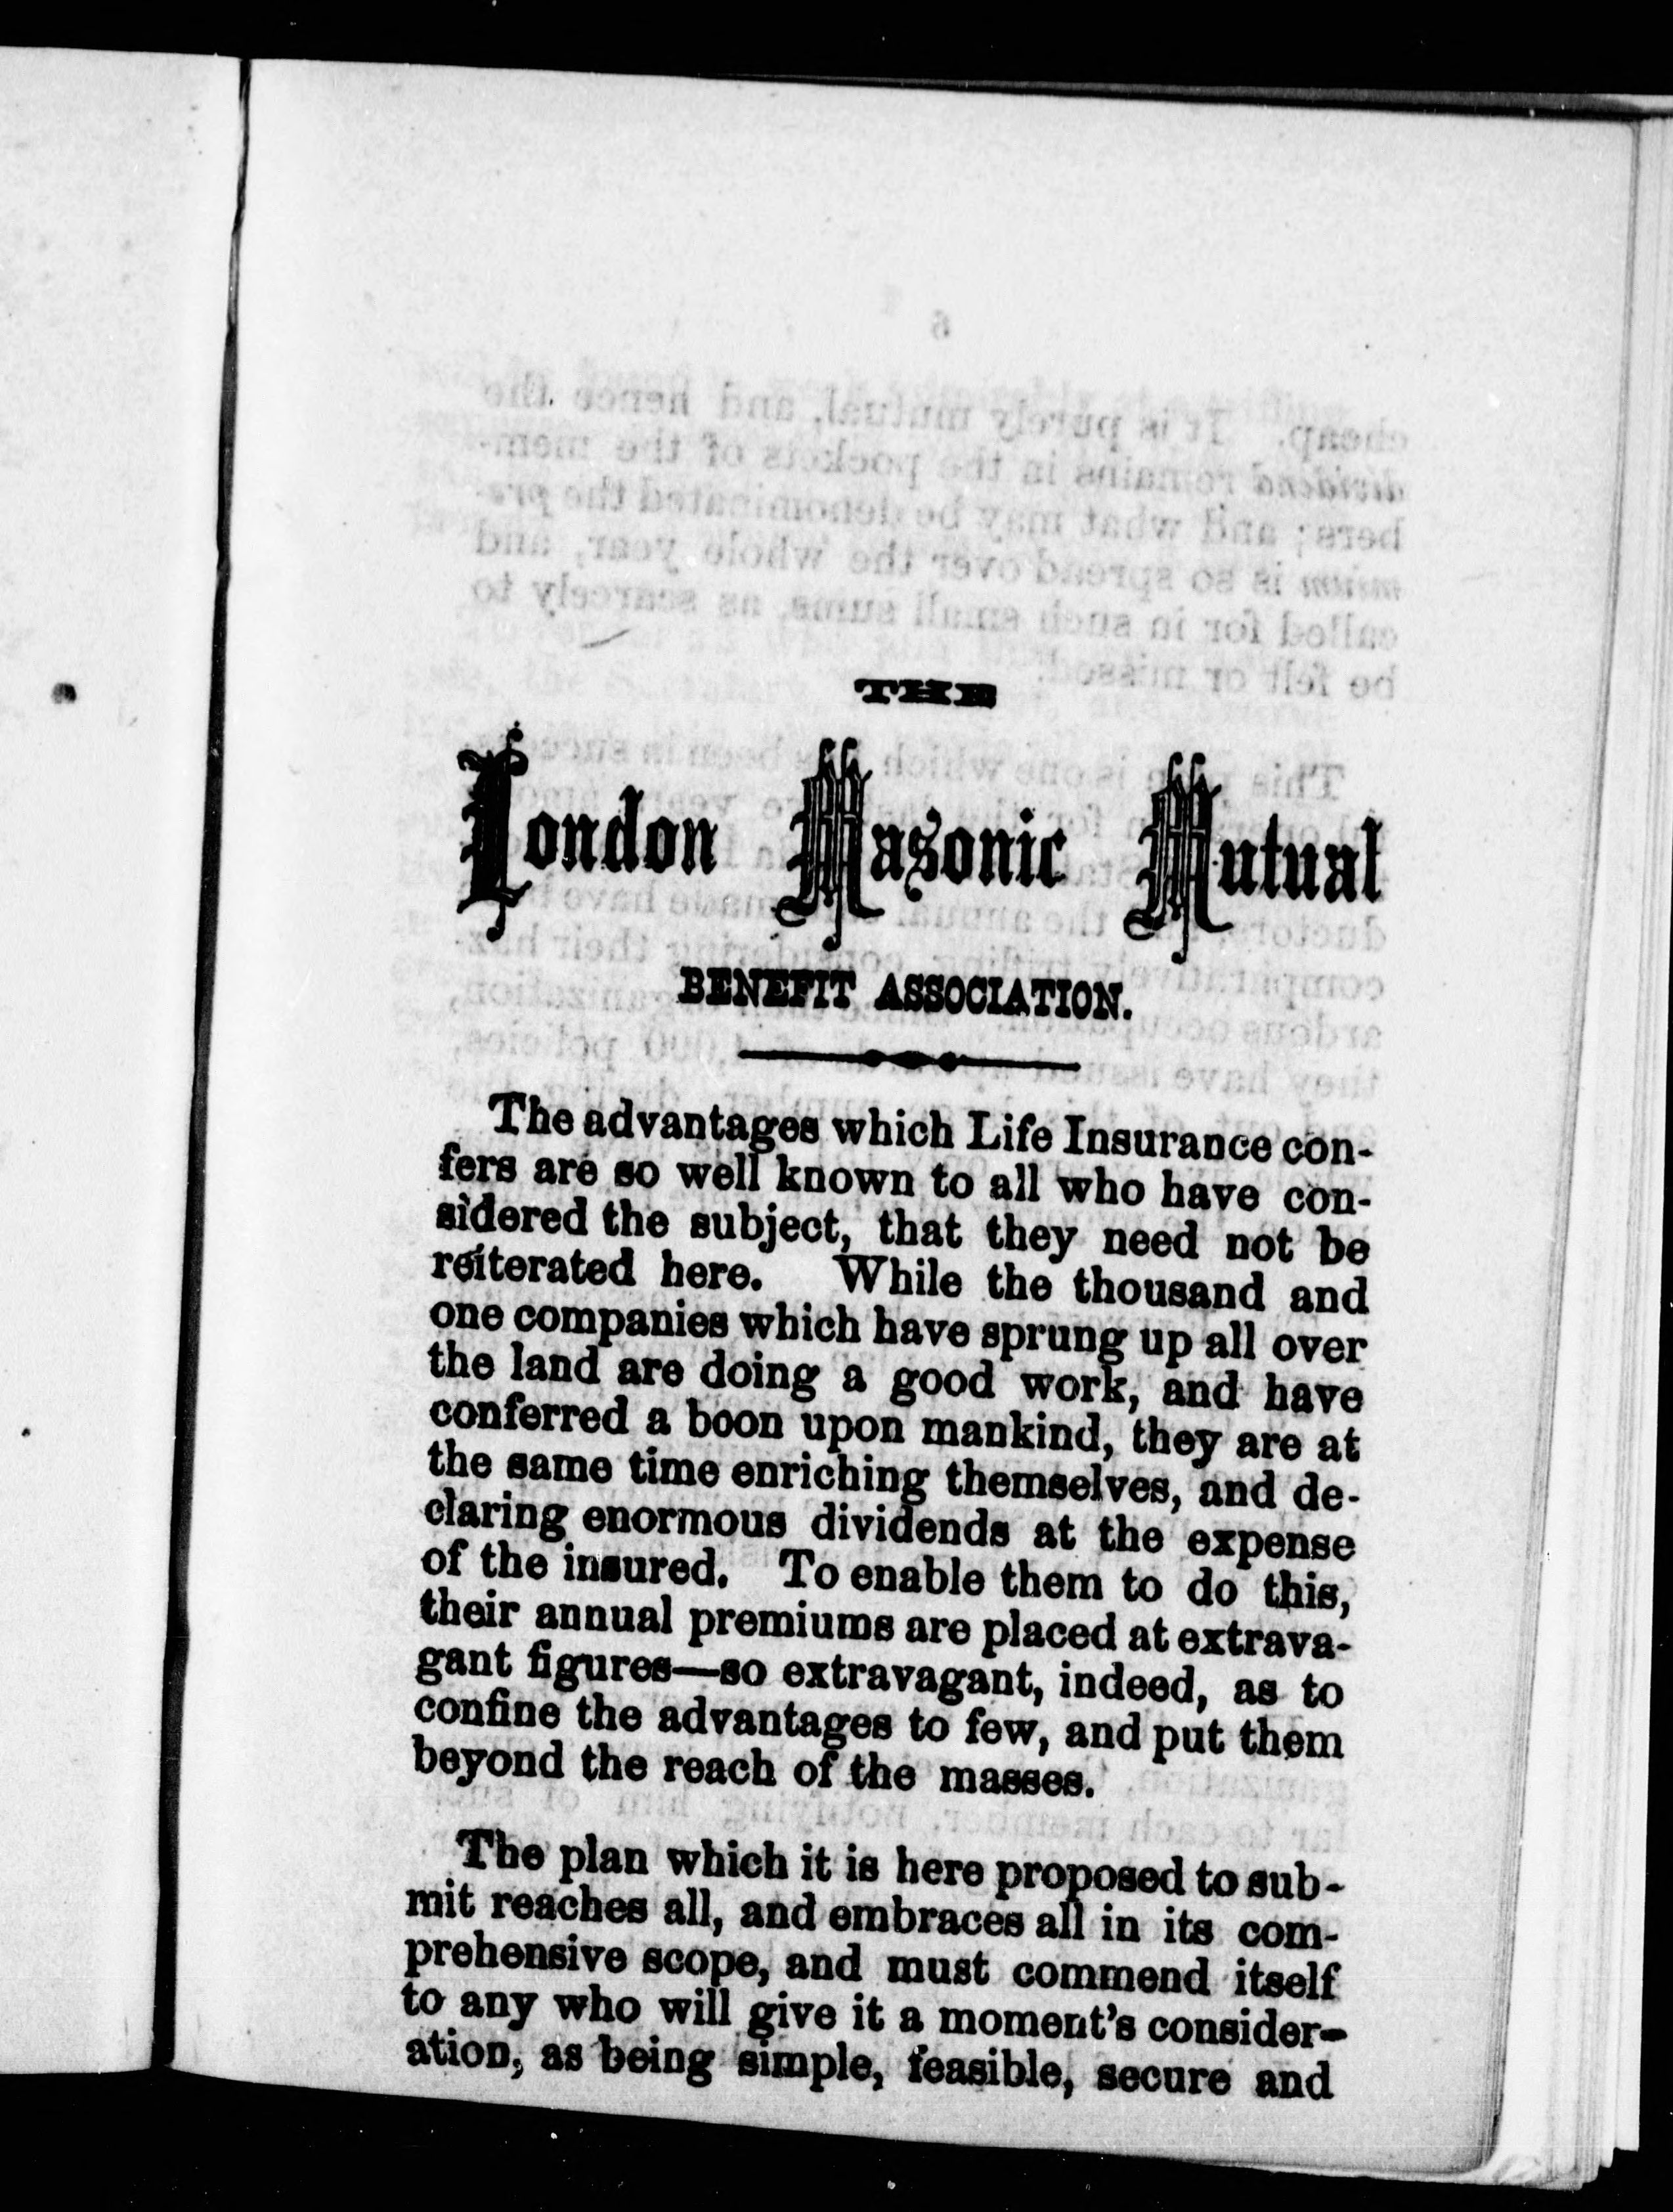 THE
London Masonic Mutual
BENEFIT ASSOCIATION.
The advantages which Life Insurance con-
fers are so well known to all who have con-
sidered the subject, that they need not be
reiterated here. While the thousand and
one companies which have sprung up all over
the land are doing a good work, and have
conferred a boon upon mankind, they are at
the same time enriching themselves, and de-
claring enormous dividends at the expense
of the insured. To enable them to do this,
their annual premiums are placed at extrava-
gant figures—so extravagant, indeed, as to
confine the advantages to few, and put them
beyond the reach of the masses.
The plan which it is here proposed to sub-
mit reaches all, and embraces all in its com-
prehensive scope, and must commend itself
to any who will give it a moment's consider-
ation, as being simple, feasible, secure and